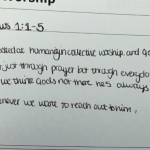 worship
us 1:1-5
humanity in collective worship, and Go
just through prayer but through everyda
we think Gods not that he's always
never we want to reach out to him.